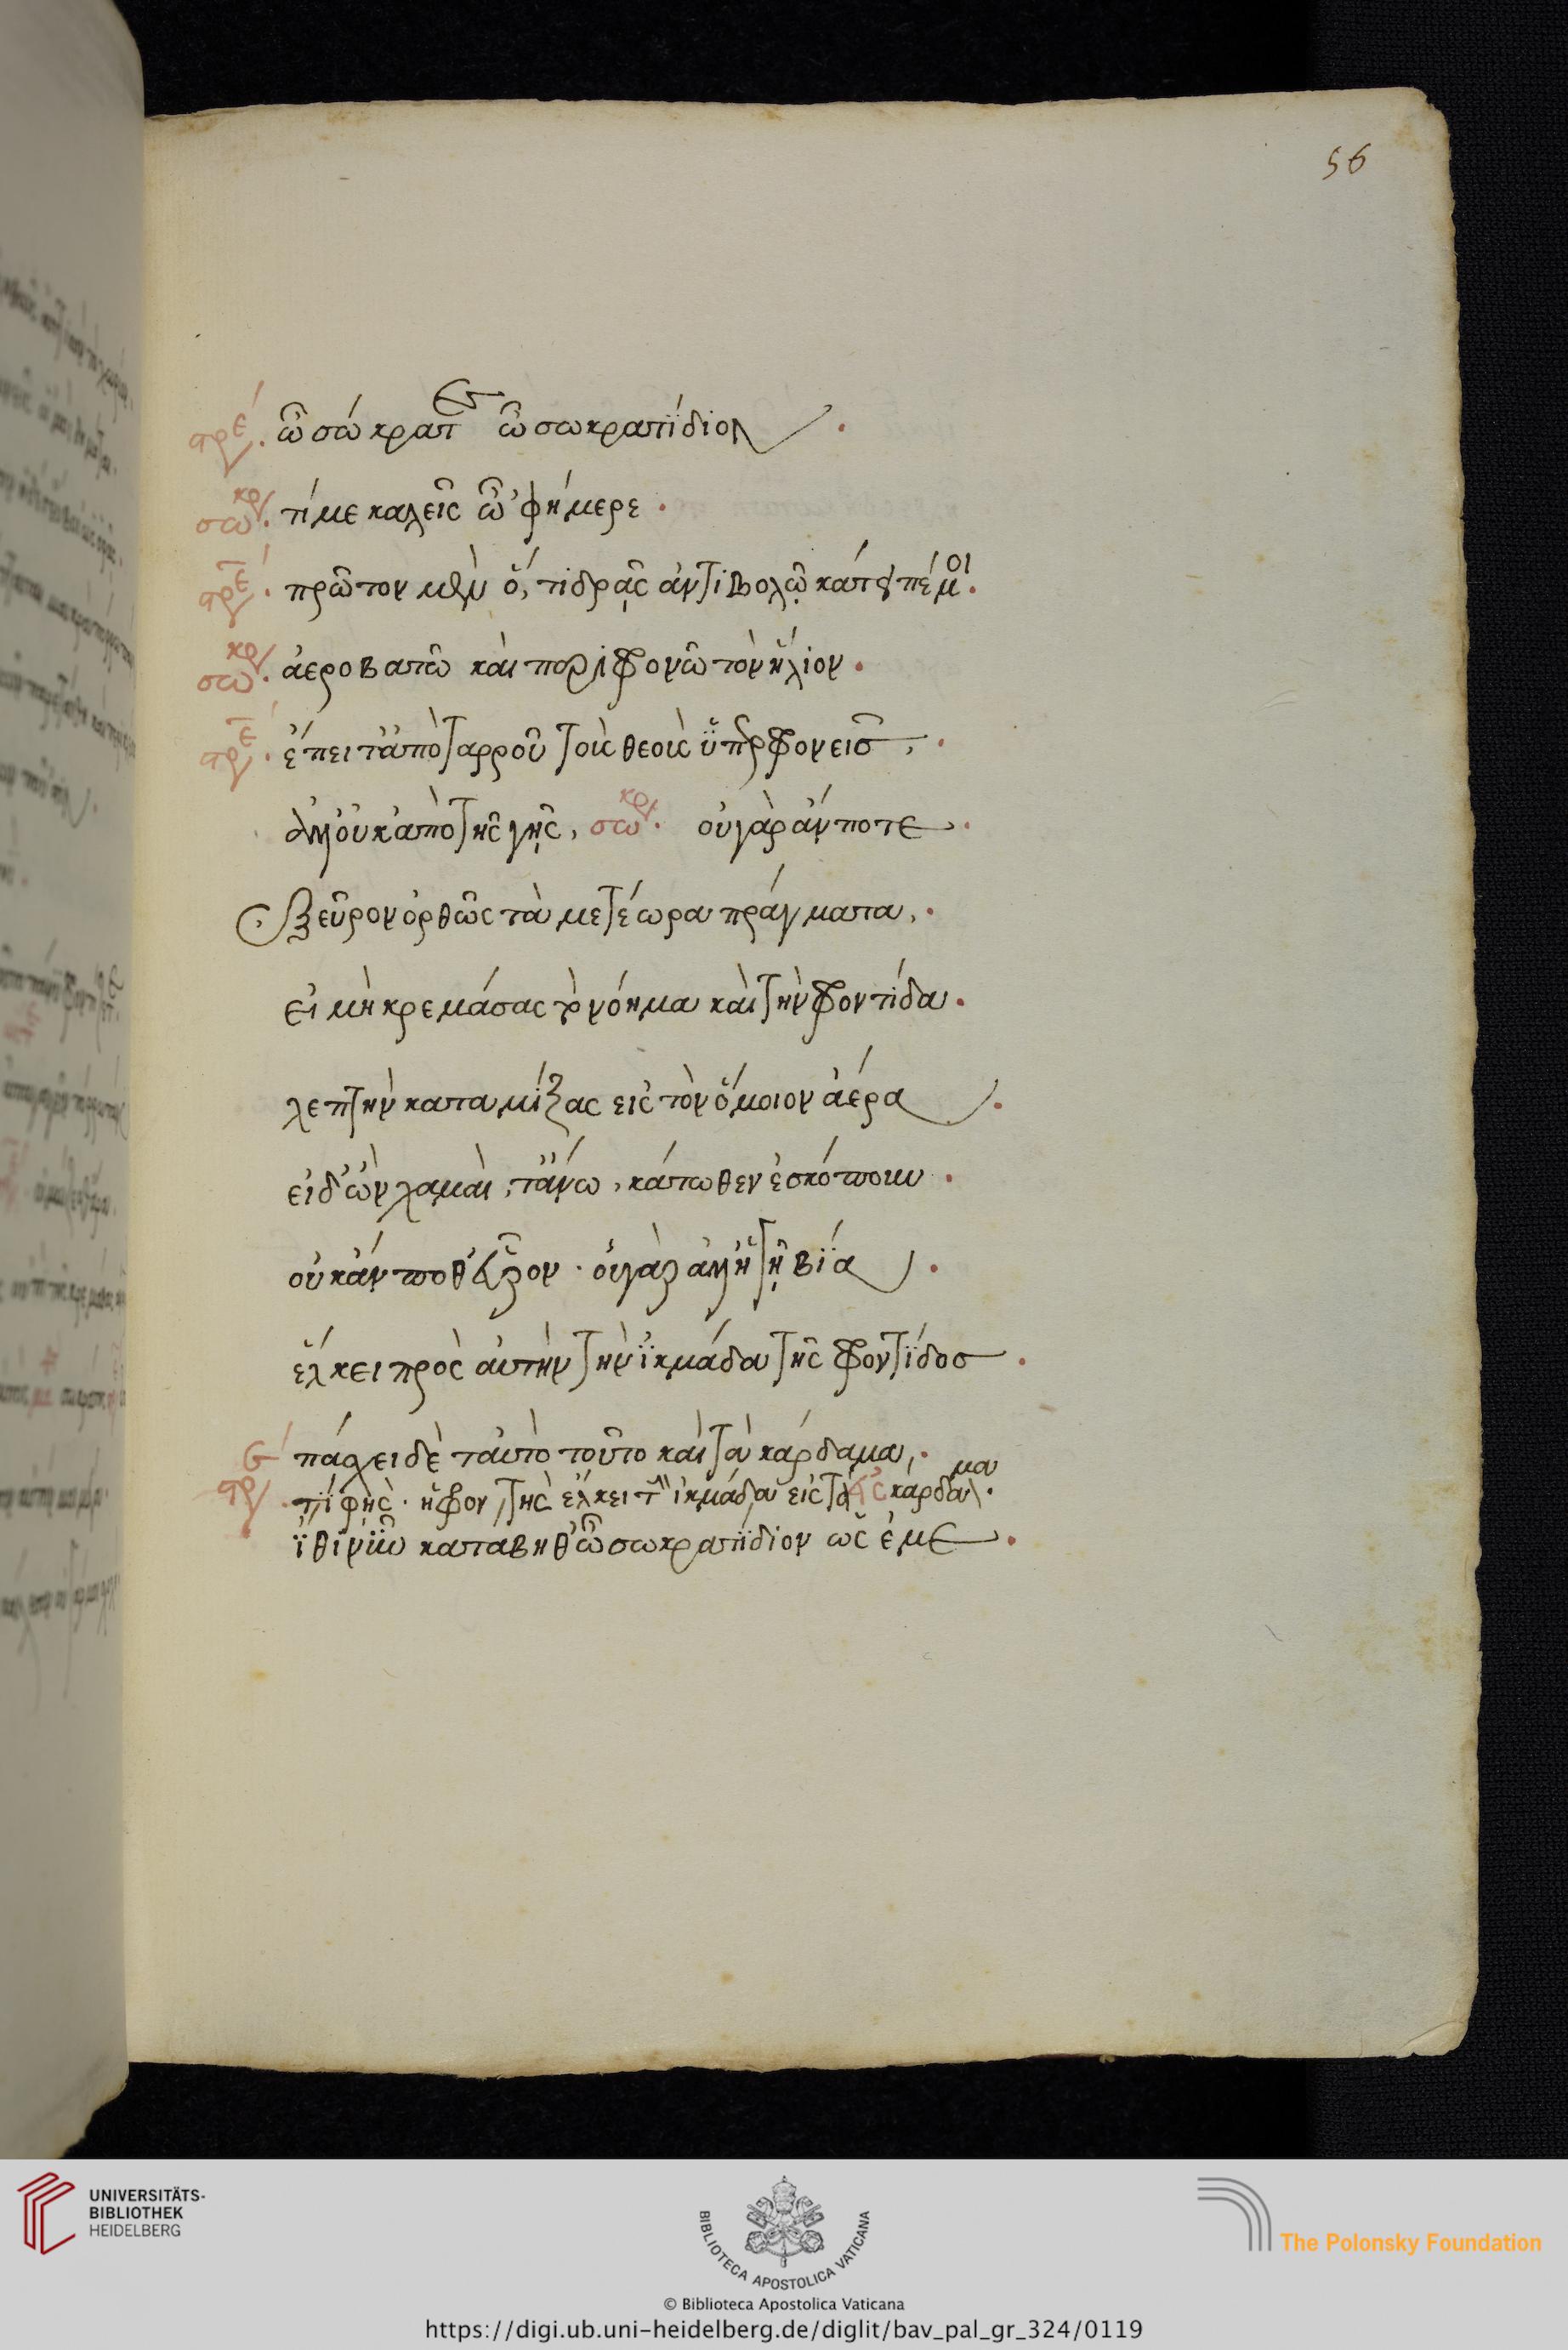 56
στρέ. ὦ σώκρατες ὦ σωκρατίδιον.
σωκρ. τί με καλεῖς ὦ ’φήμερε.
στρε. πρῶτον μὲν ὅ, τι δρᾷς ἀντιβολῶ κάτειπέ μοι.
σωκρ. ἀεροβατῶ καὶ περιφρονῶ τὸν ἥλιον.
στρε. ἔπειτ’ ἀπὸ ταρροῦ τοὺς θεοὺς ὑπερφρονεῖς,
ἀλλ’ οὐκ ἀπὸ τῆς γῆς, σωκρ. οὐ γὰρ ἄν ποτε.
ἐξεῦρον ὀρθῶς τὰ μετέωρα πράγματα,
εἰ μὴ κρεμάσας τὸ νόημα καὶ τὴν φροντίδα.
λεπτὴν καταμίξας εἰς τὸν ὅμοιον ἀέρα.
εἰ δ’ ὢν χαμαὶ, τἄνω, κάτωθεν ἐσκόπουν.
οὐκ ἄν ποθ’ εὗρον. οὐ γὰρ ἀλλ’ ἡ γῆ βίᾳ.
ἕλκει πρὸς αὑτὴν τὴν ἰκμάδα τῆς φροντίδος.
πάσχει δὲ ταὐτὸ τοῦτο καὶ τὰ κάρδαμα.
στρ. τί φής. ἡ φροντὶς ἕλκει τὴν ἰκμάδα εἰς τὰ κάρδαμα.
ἴθι νῦν κατάβηθ’ ὦ σωκρατίδιον ὡς ἐμέ.
UNIVERSITÄTS-
BIBLIOTHEK
HEIDELBERG
BIBLIOTECA APOSTOLICA VATICANA
The Polonsky Foundation
© Biblioteca Apostolica Vaticana
https://digi.ub.uni-heidelberg.de/diglit/bav_pal_gr_324/0119